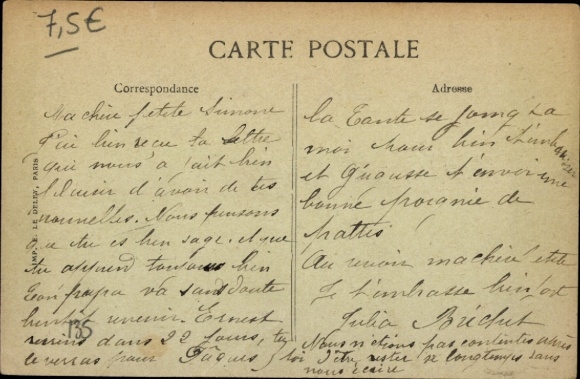 7,5€
CARTE POSTALE
Correspondance
Ma chère petite Simone
J'ai bien reçu ta lettre
qui nous a fait bien
plaisir d'avoir de tes
nouvelles. Nous pensons
que tu es bien sage et que
tu apprend toujours bien
Ton papa va sans doute
bientôt revenir. Ernest
reviens dans 22 jours, tu
le verras pour Pâques
135
IMP. E. LE DELEY, PARIS
Adresse
la Tante se joing à
moi pour bien t'embrasser
et t'envoi une
bonne de
Au revoir ma chérie
Je t'embrasse bien fort
Julia
Nous n'étions pas contentes après
toi d'être restée si longtemps sans
nous écrire